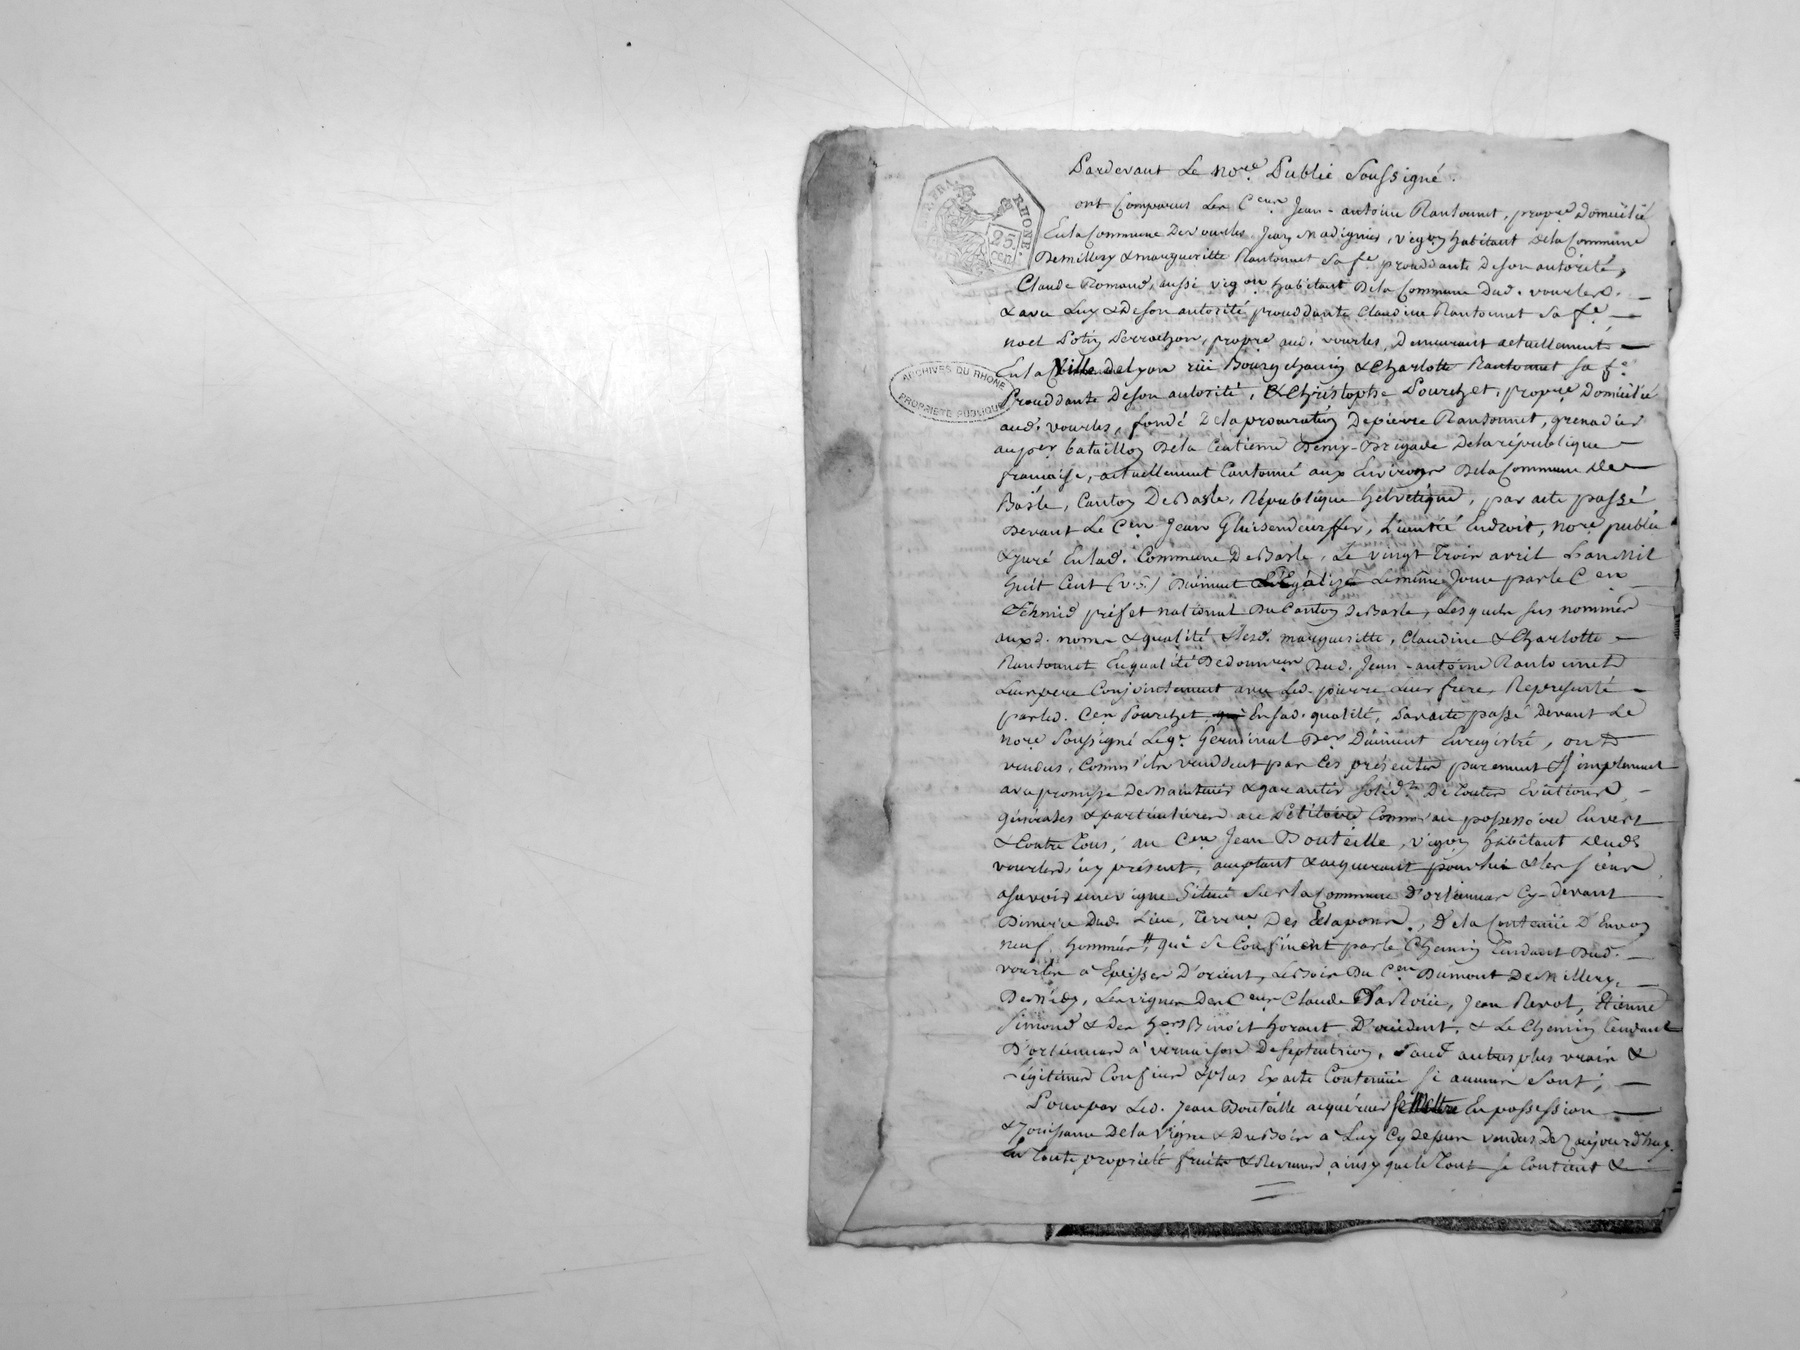 Pardevant Le nore. Public Soussigné.
ont Comparus Les Cens Jean-antoine Rantonnet, propre Domicilié
En la Commune De vourles Jean Madignier, vigon habitant De la Commune
De millery & margueritte Rantonnet Sa fe procèddante De son autorité,
Claude Romand, aussi vigon habitant De la Commune Dud. vourles.
& avec Luy & De son autorité proceddante Claudine Rantonnet Sa fe
noel Perrachon, propre aud. vourles, Demeurant actuellement
En la Ville de Lyon rüe Bourgchanin & Charlotte Rantonnet sa fe
Proceddante De son autorité, & Christophe Pourchet, propre Domicilié
aud. vourles, fondé De la procuration De pierre Rantonnet, grenadier
au per bataillon De la Centieme Demy-Brigade De la république
française, actuellement Cantonné aux Environs De la Commune De
Basle, Canton De Basle, République helvétique, par acte passé
Devant Le Cen Jean, Endroit, nore public
& juré En lad. Commune De Basle, Le vingt Trois avril L'an Mil
huit Cent (v.s.) Duëment Légalizé Le même Jour par le Cen
Schmid préfet national Du Canton De Basle, Lesquels sus nommés
auxd. noms & qualité & lesd. margueritte, Claudine & Charlotte
Rantonnet En qualité De Dud. Jean-antoine Rantonnet
Leur pere Conjointement avec Led. pierre Leur frere, Représenté
par led. Cen Pourchet, En sad. qualité, Par acte passé Devant Le
nore Soussigné Le 9e Germinal Der Düëment Enregistré, ont
vendus, Comm'ils vendent par Ces présentes purement & simplement
avec promesse De maintenir & garantir solidre De Toutes Evictions,
générales & particulieres au Pétitoire Comm'au possessoire Envers
& Contre Tous, au Cen Jean Bouteille, vigon habitant Dud.
vourles, icy présent, acceptant & acquerant pour lui & les siens
asavoir une vigne Située Sur la Commune D'orliennas Cy-devant
Dimerie Dud. Lieu, Terroir Des Etapons, De la Contenüe D'Environ
neuf hommées, qui Se Confinent par le Chemin Tendant Dud.
vourles a D'orient, Le Bois Du Cen Dumont De Millery,
De midy, Les vignes Des Cens Claude, Jean Revol, Etienne
Simond & Des hers Benoit Horant D'occident, & Le Chemin Tendant
D'orliennas a vernaison De septentrion, Sauf autres plus vrais &
Légitimes Confins & plus Exacte Contenüe si aucuns Sont;
Pour par Led. Jean Bouteille acquéreur se Mettre En possession
& Jouissance De la Vigne & Du Bois a Luy Cy Dessus vendus Dez aujourd'huy
En Toute propriété fruits & Revenus, ainsy que le Tout se Contient &
RHONE.
25
cen
ARCHIVES DU RHONE
PROPRIETE PUBLIQUE